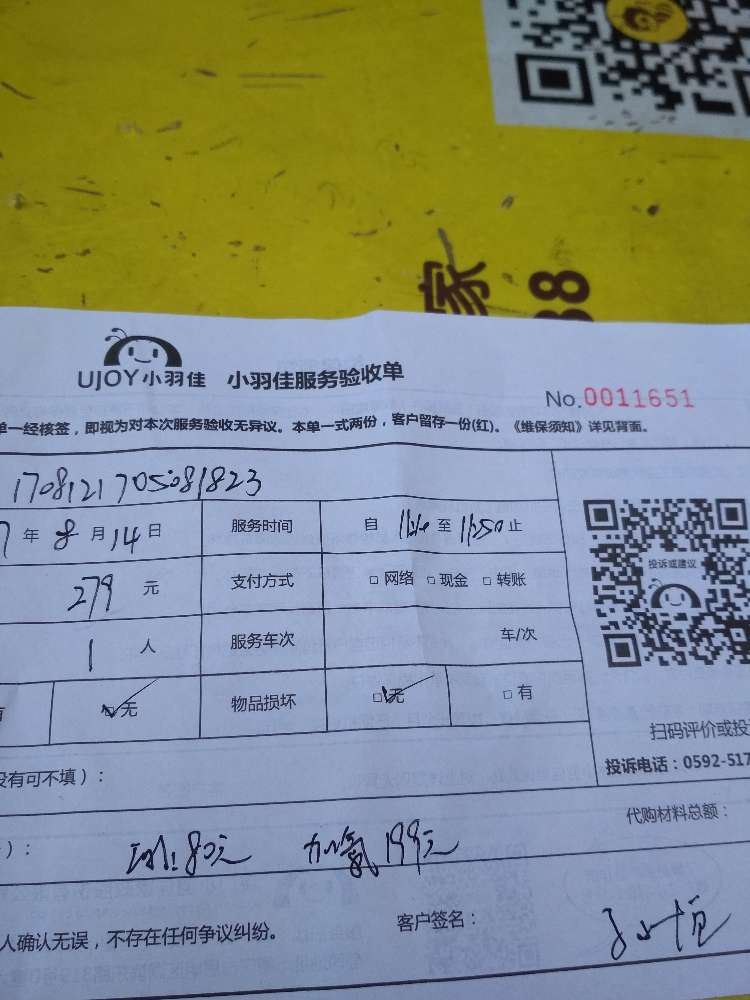 家
38
UJOY小羽佳 小羽佳服务验收单
No.0011651
单一经核签，即视为对本次服务验收无异议。本单一式两份，客户留存一份(红)。《维保须知》详见背面。
1708121705081823
7年8月14日 服务时间 自 至11:50止
279元 支付方式 □网络 □现金 □转账
1人 服务车次 车/次
有 无 物品损坏 □无 □有
投诉或建议
扫码评价或投
投诉电话：0592-517
没有可不填）：
代购材料总额：
）： 80元 加氟199元
人确认无误，不存在任何争议纠纷。 客户签名：